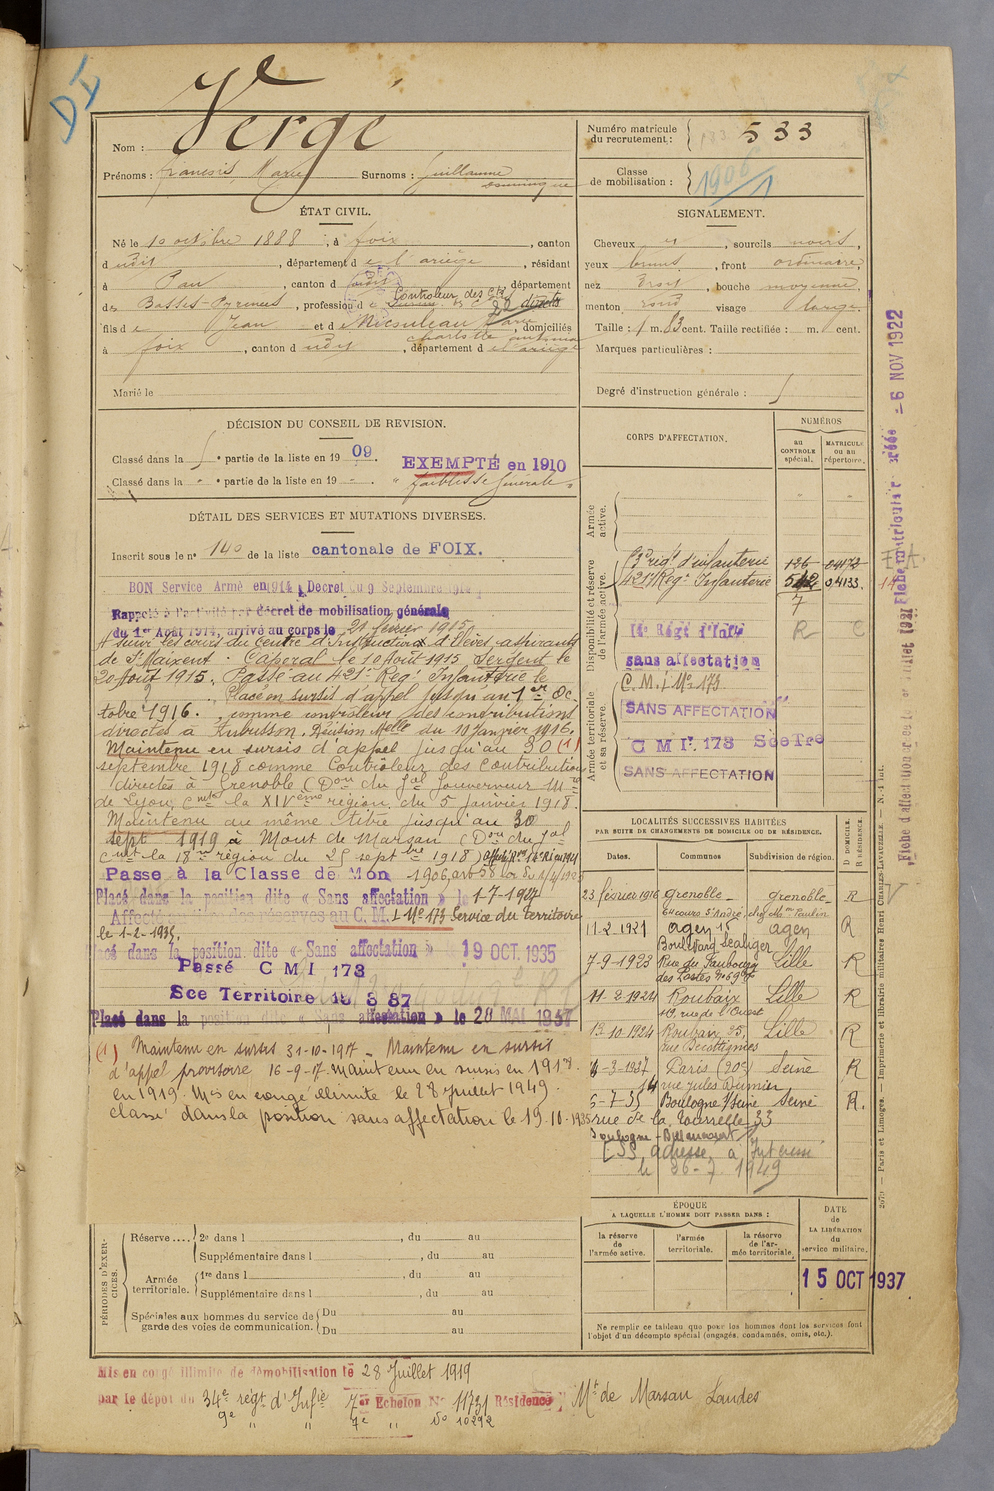 DI
Vergé
Nom :
Numéro matricule du recrutement : 533
Prénoms : François, Marie Surnoms : Guillaume
Dominique
Classe de mobilisation : 1906/1
ÉTAT CIVIL.
Né le 10 octobre 1888, à foix, canton
dudit, département de l'ariège, résidant
à Pau, canton dudit, département
des Basses-Pyrénées, profession de Controleur des Cts
directes
fils de Jean et de Marie, domiciliés
charlotte
à foix, canton dudit, département de l'ariège
Marié le
SIGNALEMENT.
Cheveux et, sourcils noirs,
yeux bruns, front ordinaire,
nez droit, bouche moyenne,
menton rond visage large.
Taille : 1 m. 83 cent. Taille rectifiée : m. cent.
Marques particulières :
Degré d'instruction générale :
DÉCISION DU CONSEIL DE REVISION.
Classé dans la 5e partie de la liste en 1909. EXEMPTÉ en 1910
Classé dans la " partie de la liste en 19 - . " faiblesse générale "
DÉTAIL DES SERVICES ET MUTATIONS DIVERSES.
Inscrit sous le no 140 de la liste cantonale de FOIX.
BON Service Armé en 1914, Decret du 9 Septembre 1914
Rappelé à l'activité par décret de mobilisation générale
du 1er Août 1914, arrivé au corps le 21 février 1915
A suivi les cours du Centre d'Instruction d'Elèves aspirants
de St Maixent. Caporal le 10 Août 1915. Sergent le
20 Août 1915. Passé au 421e Reg. Infanterie le
? Placé en sursis d'appel jusqu'au 1er Oc-
tobre 1916, comme controleur des contributions
directes à Aubusson. Décision Melle du 11 Janvier 1916.
Maintenu en sursis d'appel jusqu'au 30 (1)
septembre 1918 comme Contrôleur des Contributions
directes à Grenoble (Don du Gal Gouverneur Mre
de Lyon, Cmdt la XIVème région, du 5 Janvier 1918.
Maintenu au même titre jusqu'au 30
sept 1919 à Mont de Marsan (Don du Gal
Cmdt la 18me région du 25 septbre 1918)
Passé à la Classe de Mon 1906
Placé dans la position dite « Sans affectation » le 1-7-1927
Affecté réserves au C. M. I No 173 Service du territoire
le 1-2-1935.
Placé dans la position dite « Sans affectation » le 19 OCT. 1935
Passé C M I 173
Sce Territoire 18 3 37
Placé dans la position dite « Sans affectation » le 28 MAI 1937
(1) Maintenu en sursis 31-10-1917 - Maintenu en sursis
d'appel provisoire 16-9-17. Maintenu en sursis en 1918
en 1919. Mis en congé illimité le 28 Juillet 1949.
Classé dans la position sans affectation le 19-10-1935
CORPS D'AFFECTATION.
NUMÉROS
au CONTROLE spécial.
MATRICULE ou au répertoire.
Armée active.
Disponibilité et réserve de l'armée active.
d'infanterie 126 04172
421e Reg. Infanterie 512 04133
7
14e Régt d'Infie R C
sans affectation
Armée territoriale et sa réserve.
C. M. I No 173
SANS AFFECTATION
C M Ir. 173 Sce Tre
SANS AFFECTATION
LOCALITÉS SUCCESSIVES HABITÉES
PAR SUITE DE CHANGEMENTS DE DOMICILE OU DE RÉSIDENCE.
Dates. Communes Subdivision de région. D DOMICILE. R RÉSIDENCE.
23 février 1916 Grenoble - Grenoble - R
11-2-1921 agen agen R
7-9-1923 Rue du Faubourg Lille R
des Postes No 69
11-2-1924 Roubaix Lille R
rue de l'Ouest
13-10-1924 Roubaix 25, Lille R
4-3-1937 Paris (20e) Seine R
14 rue Jules Dumien
6-7-35 Boulogne s/Seine Seine R.
rue de la Tourelle 33
Boulogne - Billancourt
adresse
le 26-7-1949
ÉPOQUE
A LAQUELLE L'HOMME DOIT PASSER DANS :
la réserve de l'armée active.
l'armée territoriale.
la réserve de l'armée territoriale.
DATE de LA LIBÉRATION du service militaire.
15 OCT 1937
Ne remplir ce tableau que pour les hommes dont les services font
l'objet d'un décompte spécial (engagés, condamnés, omis, etc.).
PÉRIODES D'EXERCICES.
Réserve .... 2e dans l , du au
Supplémentaire dans l , du au
Armée territoriale. 1re dans l , du au
Supplémentaire dans l , du au
Spéciales aux hommes du service de garde des voies de communication. Du au
Du au
Mis en congé illimité de démobilisation le 28 Juillet 1919
par le dépot du 34e régt d'Infie 7er Echelon No 11731 Résidence Mt de Marsan Landes
9e " " 7e " No 10292
Fiche matriculaire créée - 6 NOV 1922
2079 — Paris et Limoges. — Imprimerie et librairie militaires Henri CHARLES-LAVAUZELLE.